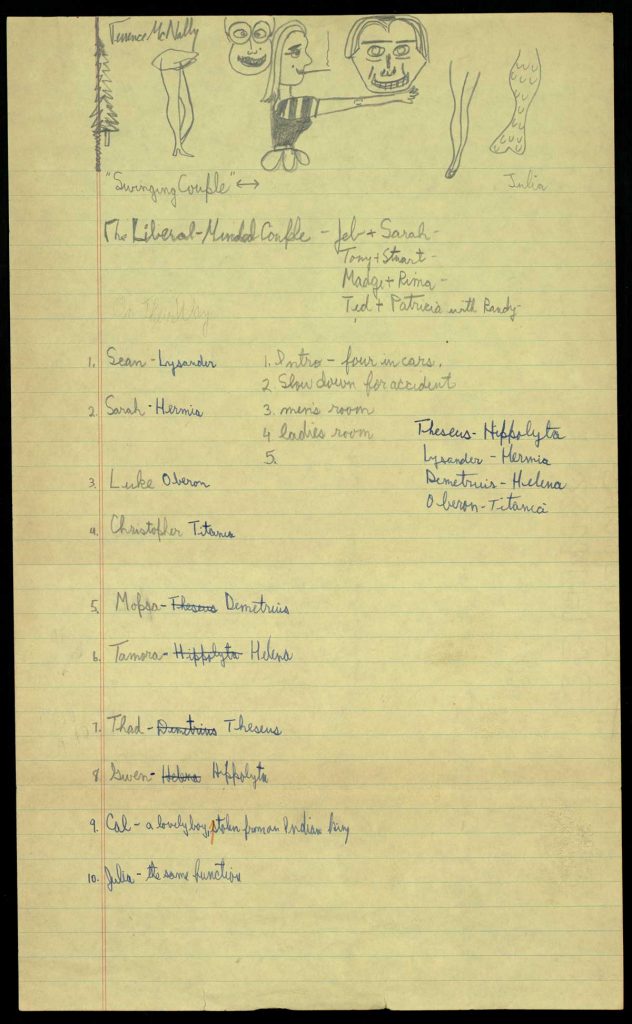 Terrence McNally
"Swinging Couple" ↔
Julia
The Liberal-Minded Couple - Jeb + Sarah -
Tony + Stuart -
Madge + Rima -
Ted + Patricia with Randy -
On The Way
1. Sean - Lysander
1. Intro - four in cars.
2 Slow down for accident
2. Sarah - Hermia
3. men's room
4 ladies room
5.
Theseus - Hippolyta
Lysander - Hermia
Demetrius - Helena
Oberon - Titania
3. Luke Oberon
4. Christopher Titania
5. Mopsa - Theseus Demetrius
6. Tamora - Hippolyta Helena
7. Thad - Demetrius Theseus
8. Gwen - Helena Hippolyta
9. Cal - a lovely boy, stolen from an Indian king
10. Julia - the same function